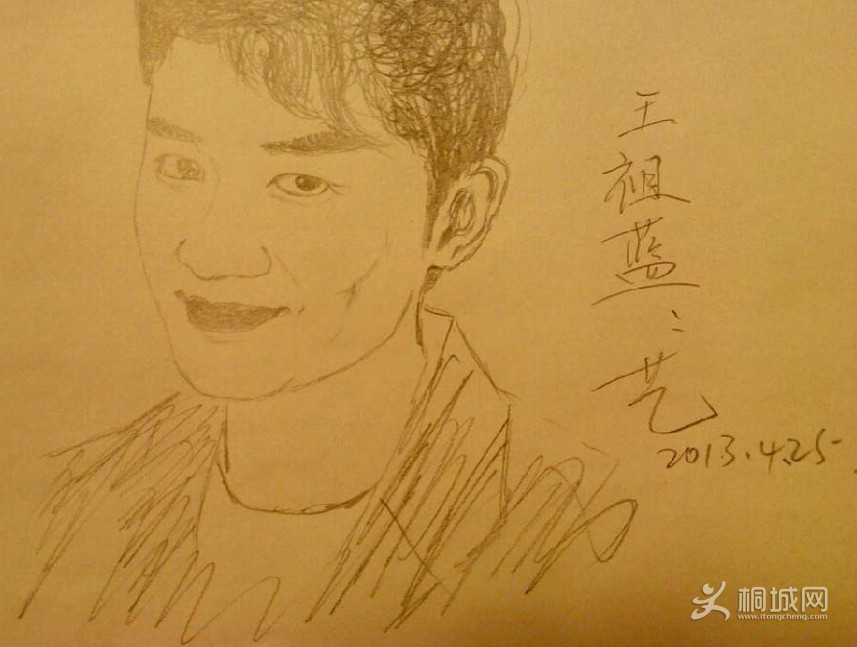 王祖蓝：艺
2013.4.25
桐城网
www.itongcheng.com